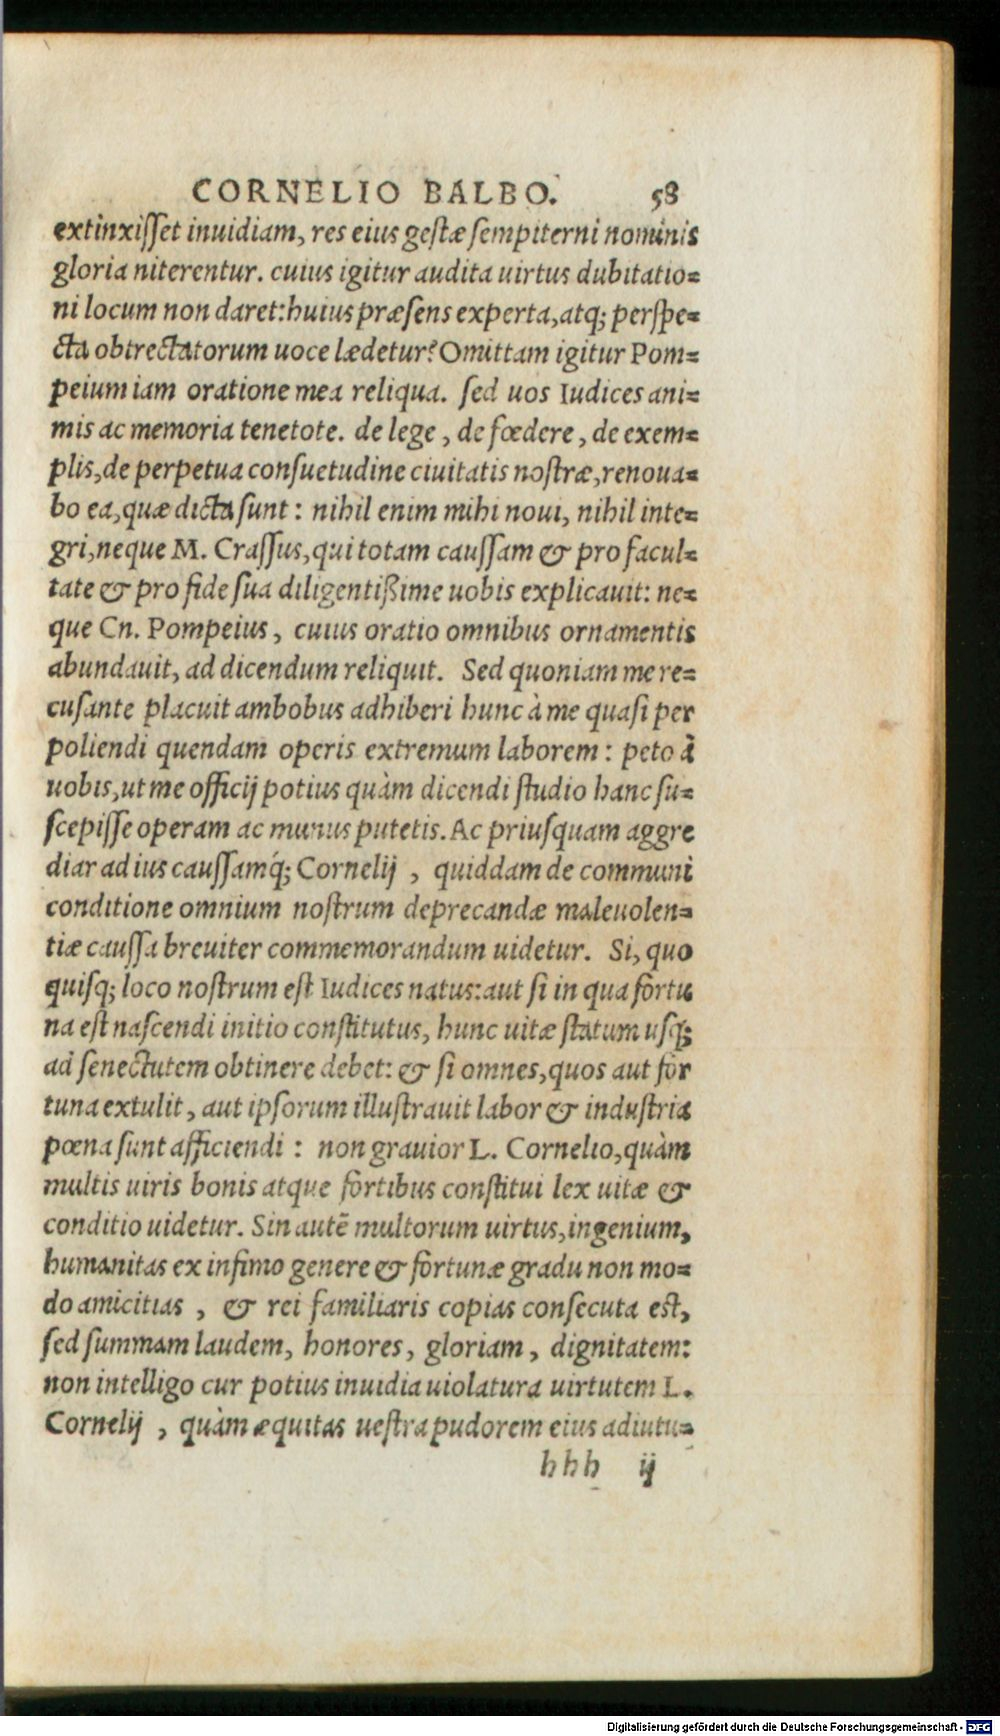 CORNELIO BALBO. 58
extinxiſſet inuidiam, res eius geſtæ ſempiterni nominis
gloria niterentur. cuius igitur audita uirtus dubitatio=
ni locum non daret: huius præſens experta, atq; perſpe=
cta obtrectatorum uoce lædetur? Omittam igitur Pom=
peium iam oratione mea reliqua. ſed uos Iudices ani=
mis ac memoria tenetote. de lege, de fœdere, de exem=
plis, de perpetua conſuetudine ciuitatis noſtræ, renoua=
bo ea, quæ dicta ſunt: nihil enim mihi noui, nihil inte=
gri, neque M. Craſſus, qui totam cauſſam & pro facul=
tate & pro fide ſua diligentißime uobis explicauit: ne=
que Cn. Pompeius, cuius oratio omnibus ornamentis
abundauit, ad dicendum reliquit. Sed quoniam me re=
cuſante placuit ambobus adhiberi hunc à me quaſi per
poliendi quendam operis extremum laborem: peto à
uobis, ut me officij potius quàm dicendi ſtudio hanc ſu=
ſcepiſſe operam ac munus putetis. Ac priuſquam aggre
diar ad ius cauſſamq́; Cornelij, quiddam de communi
conditione omnium noſtrum deprecandæ maleuolen=
tiæ cauſſa breuiter commemorandum uidetur. Si, quo
quiſq; loco noſtrum eſt Iudices natus: aut ſi in qua fortu
na eſt naſcendi initio conſtitutus, hunc uitæ ſtatum uſq;
ad ſenectutem obtinere debet: & ſi omnes, quos aut for
tuna extulit, aut ipſorum illuſtrauit labor & induſtria
pœna ſunt afficiendi: non grauior L. Cornelio, quàm
multis uiris bonis atque fortibus conſtitui lex uitæ &
conditio uidetur. Sin autē multorum uirtus, ingenium,
humanitas ex infimo genere & fortunæ gradu non mo=
do amicitias, & rei familiaris copias conſecuta eſt,
ſed ſummam laudem, honores, gloriam, dignitatem:
non intelligo cur potius inuidia uiolatura uirtutem L.
Cornelij, quàm æquitas ueſtra pudorem eius adiutu=
hhh ij
Digitalisierung gefördert durch die Deutsche Forschungsgemeinschaft - DFG